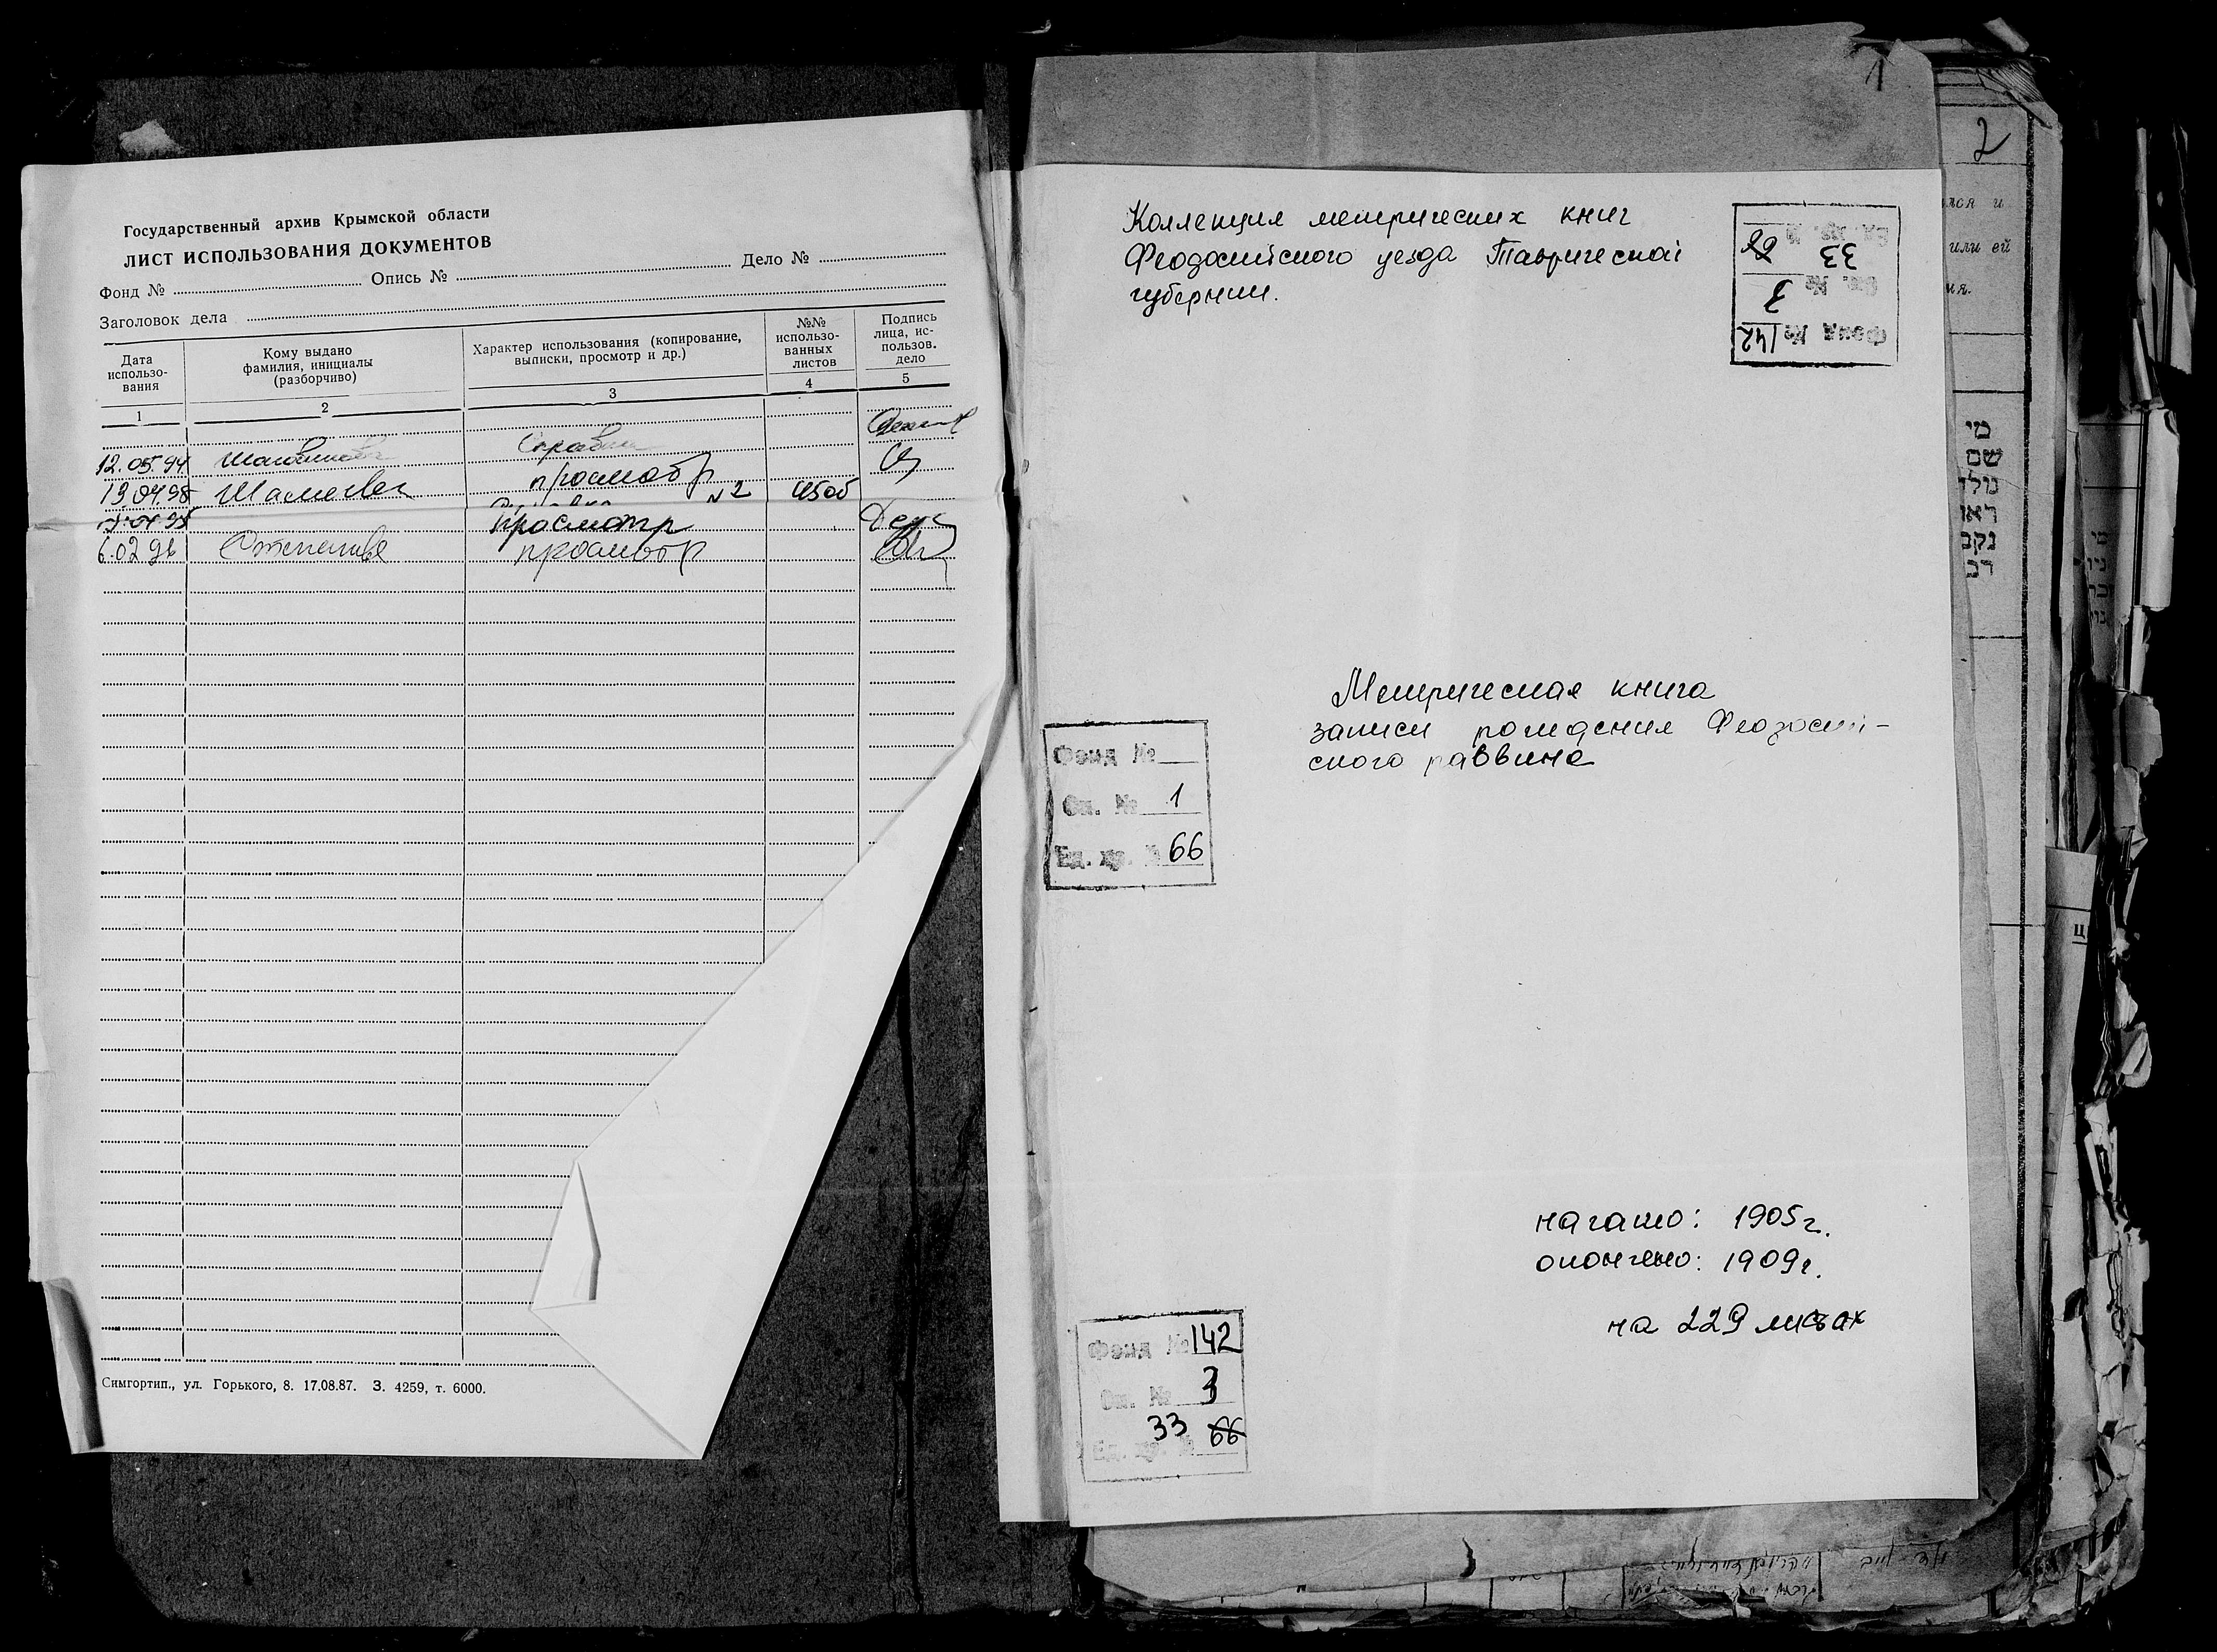 Государственный архив Крымской области
ЛИСТ ИСПОЛЬЗОВАНИЯ ДОКУМЕНТОВ
Фонд № Опись № Дело №
Заголовок дела
Дата использо-вания
Кому выдано фамилия, инициалы (разборчиво)
Характер использования (копирование, выписки, просмотр и др.)
№№ использо-ванных листов
Подпись лица, ис-пользов. дело
1 2 3 4 5
12.05.94
19.04.95 просмотр
№2 45об
просмотр
6.02.96 просмотр
Симгортип., ул. Горького, 8. 17.08.87. З. 4259, т. 6000.
1
2
Коллекция метрических книг
Феодосийского уезда Таврической
губернии.
Фонд № 142
Оп. № 3
Ед. хр. № 33 66
Метрическая книга
записи рождения Феодосий-
ского раввина
Фонд №
Оп. № 1
Ед. хр. № 66
начато: 1905г.
окончено: 1909г.
на 229 листах
Фонд № 142
Оп. № 3
33 66
Ед. хр. №
лся и
или ей
мя.
מי
שם
נולד
ראו
נקב